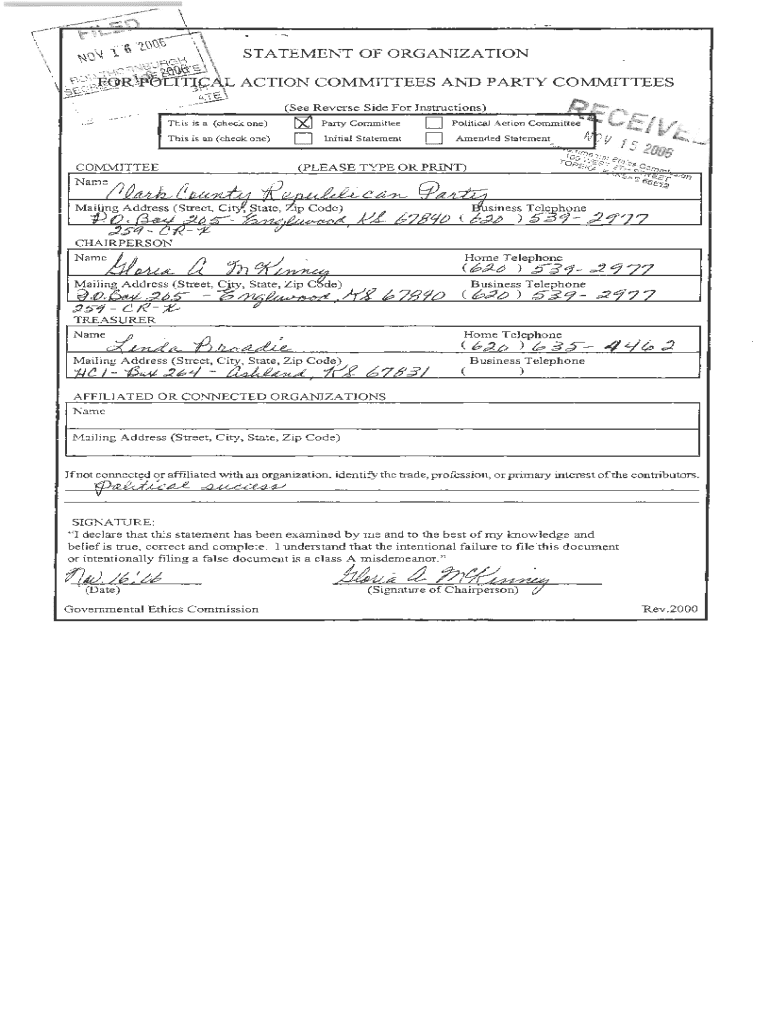 FILED
NOV 16 2006
STATEMENT OF ORGANIZATION
FOR POLITICAL ACTION COMMITTEES AND PARTY COMMITTEES
(See Reverse Side For Instructions)
RECEIVE
NOV 15 2006
This is a (check one) X Party Committee Political Action Committee
This is an (check one) Initial Statement Amended Statement
COMMITTEE (PLEASE TYPE OR PRINT)
Name Clark County Republican Party
Mailing Address (Street, City, State, Zip Code) Business Telephone
P.O. Box 265 - Englewood, KS 67840 (620) 539-2977
259-CR-X
CHAIRPERSON
Name Gloria A McKinney Home Telephone
(620) 539-2977
Mailing Address (Street, City, State, Zip Code) Business Telephone
P.O. Box 265 - Englewood, KS 67840 (620) 539-2977
259-CR-X
TREASURER
Name Linda Broadie Home Telephone
(620) 635-4462
Mailing Address (Street, City, State, Zip Code) Business Telephone
HC1 - Box 264 - Ashland, KS 67831 ( )
AFFILIATED OR CONNECTED ORGANIZATIONS
Name
Mailing Address (Street, City, State, Zip Code)
If not connected or affiliated with an organization, identify the trade, profession, or primary interest of the contributors.
Political success
SIGNATURE:
"I declare that this statement has been examined by me and to the best of my knowledge and
belief is true, correct and complete. I understand that the intentional failure to file this document
or intentionally filing a false document is a class A misdemeanor."
Gloria A McKinney
(Date) (Signature of Chairperson)
Governmental Ethics Commission Rev.2000